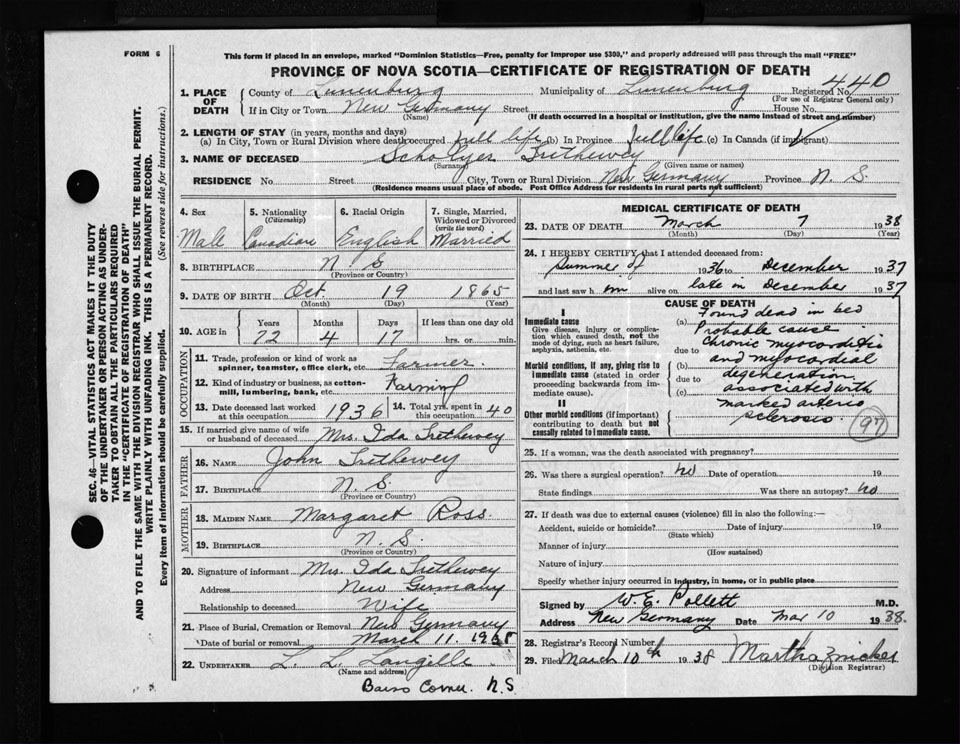 FORM 6
This form if placed in an envelope, marked "Dominion Statistics—Free, penalty for improper use $300," and properly addressed will pass through the mail "FREE"
PROVINCE OF NOVA SCOTIA—CERTIFICATE OF REGISTRATION OF DEATH
1. PLACE OF DEATH County of Lunenburg Municipality of Lunenburg Registered No. 440
(For use of Registrar General only)
If in City or Town New Germany Street House No.
(Name) (If death occurred in a hospital or institution, give the name instead of street and number)
2. LENGTH OF STAY (in years, months and days)
(a) In City, Town or Rural Division where death occurred full life (b) In Province full life (c) In Canada (if immigrant)
3. NAME OF DECEASED Trethewey
(Surname) (Given name or names)
RESIDENCE No. Street City, Town or Rural Division New Germany Province N. S.
(Residence means usual place of abode. Post Office Address for residents in rural parts not sufficient)
4. Sex 5. Nationality (Citizenship) 6. Racial Origin 7. Single, Married, Widowed or Divorced (write the word)
Male Canadian English Married
8. BIRTHPLACE N. S
(Province or Country)
9. DATE OF BIRTH Oct. 19 1865
(Month) (Day) (Year)
10. AGE in Years Months Days If less than one day old
72 4 17 hrs. or min.
OCCUPATION
11. Trade, profession or kind of work as spinner, teamster, office clerk, etc. Farmer
12. Kind of industry or business, as cotton-mill, lumbering, bank, etc. Farming
13. Date deceased last worked at this occupation 1936 14. Total yrs. spent in this occupation 40
15. If married give name of wife or husband of deceased Mrs. Ida Trethewey
FATHER
16. NAME John Trethewey
17. BIRTHPLACE N. S.
(Province or Country)
MOTHER
18. MAIDEN NAME Margaret Ross.
19. BIRTHPLACE N. S.
(Province or Country)
20. Signature of informant Mrs. Ida Trethewey
Address New Germany
Relationship to deceased Wife
21. Place of Burial, Cremation or Removal New Germany
Date of burial or removal March 11. 1938
22. UNDERTAKER L. L. Langille
(Name and address)
N.S.
MEDICAL CERTIFICATE OF DEATH
23. DATE OF DEATH March 7 1938
(Month) (Day) (Year)
24. I HEREBY CERTIFY that I attended deceased from:
Summer of 1936 to December 1937
and last saw him alive on late in December 1937
CAUSE OF DEATH
I
Immediate cause
Give disease, injury or complication which caused death, not the mode of dying, such as heart failure, asphyxia, asthenia, etc.
Morbid conditions, if any, giving rise to immediate cause (stated in order proceeding backwards from immediate cause).
II
Other morbid conditions (if important) contributing to death but not causally related to immediate cause.
(a) Found dead in bed
Probable cause
due to Chronic myocarditis
(b) and myocardial
due to degeneration
(c) associated with
marked arterio
sclerosis
97
25. If a woman, was the death associated with pregnancy?
26. Was there a surgical operation? No Date of operation 19
State findings Was there an autopsy? No
27. If death was due to external causes (violence) fill in also the following:—
Accident, suicide or homicide? Date of injury 19
(State which)
Manner of injury
(How sustained)
Nature of injury
Specify whether injury occurred in industry, in home, or in public place
Signed by W. E. Pollett M.D.
Address New Germany Date Mar 10 1938.
28. Registrar's Record Number
29. Filed March 10th 1938 Martha Zwicker
(Division Registrar)
SEC. 46—VITAL STATISTICS ACT MAKES IT THE DUTY
OF THE UNDERTAKER OR PERSON ACTING AS UNDER-
TAKER TO OBTAIN ALL THE PARTICULARS REQUIRED
IN THE "CERTIFICATE OF REGISTRATION OF DEATH"
AND TO FILE THE SAME WITH THE DIVISION REGISTRAR WHO SHALL ISSUE THE BURIAL PERMIT.
WRITE PLAINLY WITH UNFADING INK. THIS IS A PERMANENT RECORD.
Every item of information should be carefully supplied. (See reverse side for instructions.)